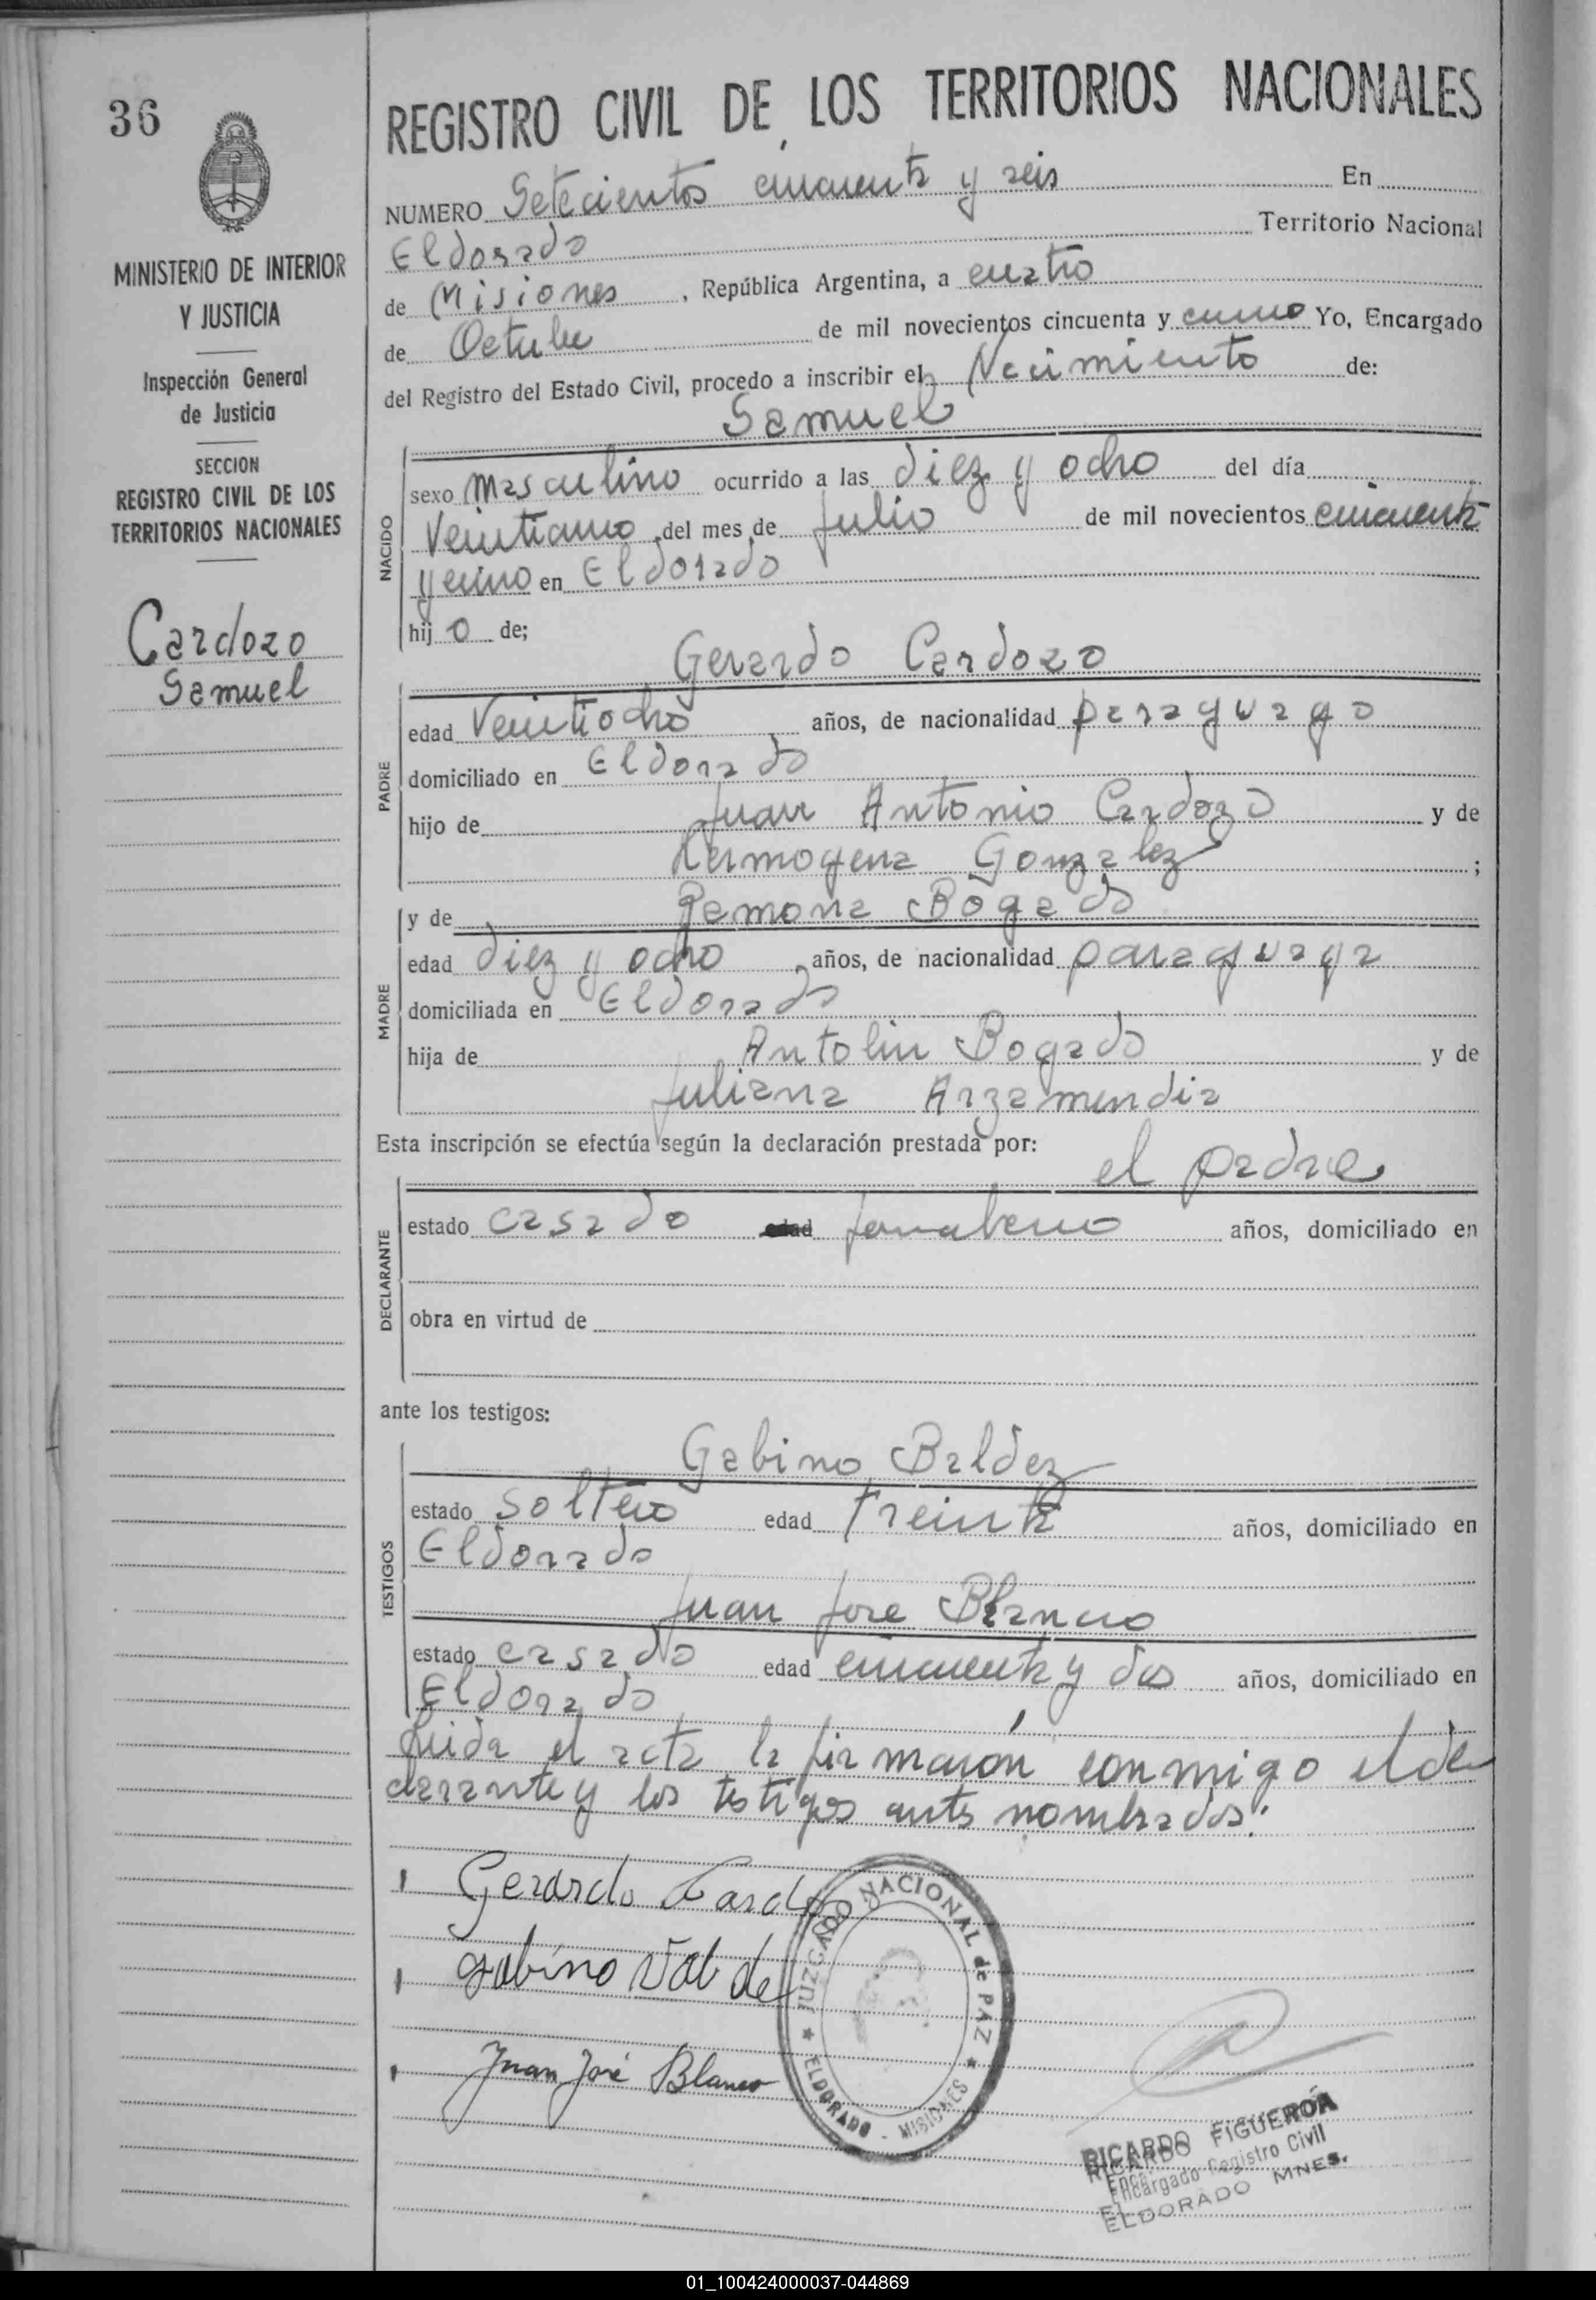 36
MINISTERIO DE INTERIOR
Y JUSTICIA
Inspección General
de Justicia
SECCION
REGISTRO CIVIL DE LOS
TERRITORIOS NACIONALES
Cardozo
Samuel
REGISTRO CIVIL DE LOS TERRITORIOS NACIONALES
NUMERO Setecientos cincuenta y seis En
Eldorado Territorio Nacional
de Misiones, República Argentina, a cuatro
de Octubre de mil novecientos cincuenta y cinco Yo, Encargado
del Registro del Estado Civil, procedo a inscribir el Nacimiento de:
Samuel
NACIDO
sexo masculino ocurrido a las diez y ocho del día
Veinticinco del mes de Julio de mil novecientos cincuenta
y cinco en Eldorado
hijo de;
Gerardo Cardozo
PADRE
edad Veintiocho años, de nacionalidad paraguayo
domiciliado en Eldorado
hijo de Juan Antonio Cardozo y de
Hermogena Gonzalez ;
MADRE
y de Ramona Bogado
edad diez y ocho años, de nacionalidad paraguaya
domiciliada en Eldorado
hija de Antolin Bogado y de
Juliana Arzamendia
Esta inscripción se efectúa según la declaración prestada por:
el padre
DECLARANTE
estado casado edad años, domiciliado en
obra en virtud de
ante los testigos:
TESTIGOS
Gabino Baldez
estado soltero edad treinta años, domiciliado en
Eldorado
Juan Jose Blanco
estado casado edad cincuenta y dos años, domiciliado en
Eldorado
Leida el acta la firmaron conmigo el de
clarante y los testigos antes nombrados:
Gerardo Cardozo
Gabino Valdez
Juan José Blanco
JUZGADO NACIONAL de PAZ
ELDORADO - MISIONES
RICARDO FIGUEROA
Encargado Registro Civil
ELDORADO MNES.
01_100424000037-044869